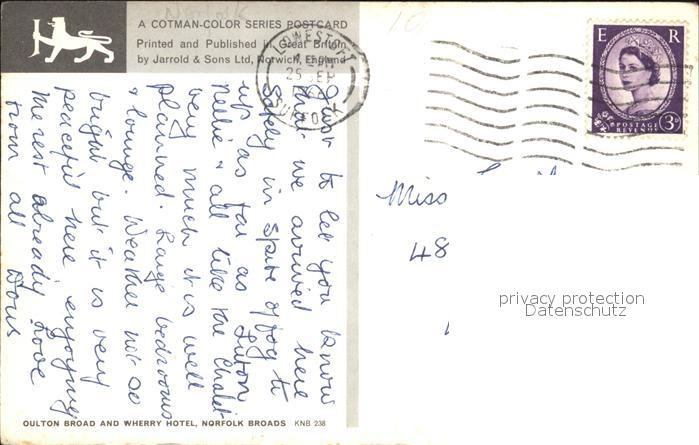 Norfolk
10
A COTMAN-COLOR SERIES POSTCARD
Printed and Published in Great Britain
by Jarrold & Sons Ltd, Norwich, England
LOWESTOFT
25 SEP
SUFFOLK
E R
POSTAGE
REVENUE
3D
Just to let you know
that we arrived here
safely in spite of fog to
us as far as Luton
Nellie & all like the Chalet
very much it is well
planned. Large bedrooms
& lounge. Weather not so
bright but it is very
peaceful here enjoying
the rest already Love
from all
Doris
Miss
48
privacy protection
Datenschutz
OULTON BROAD AND WHERRY HOTEL, NORFOLK BROADS KNB 238